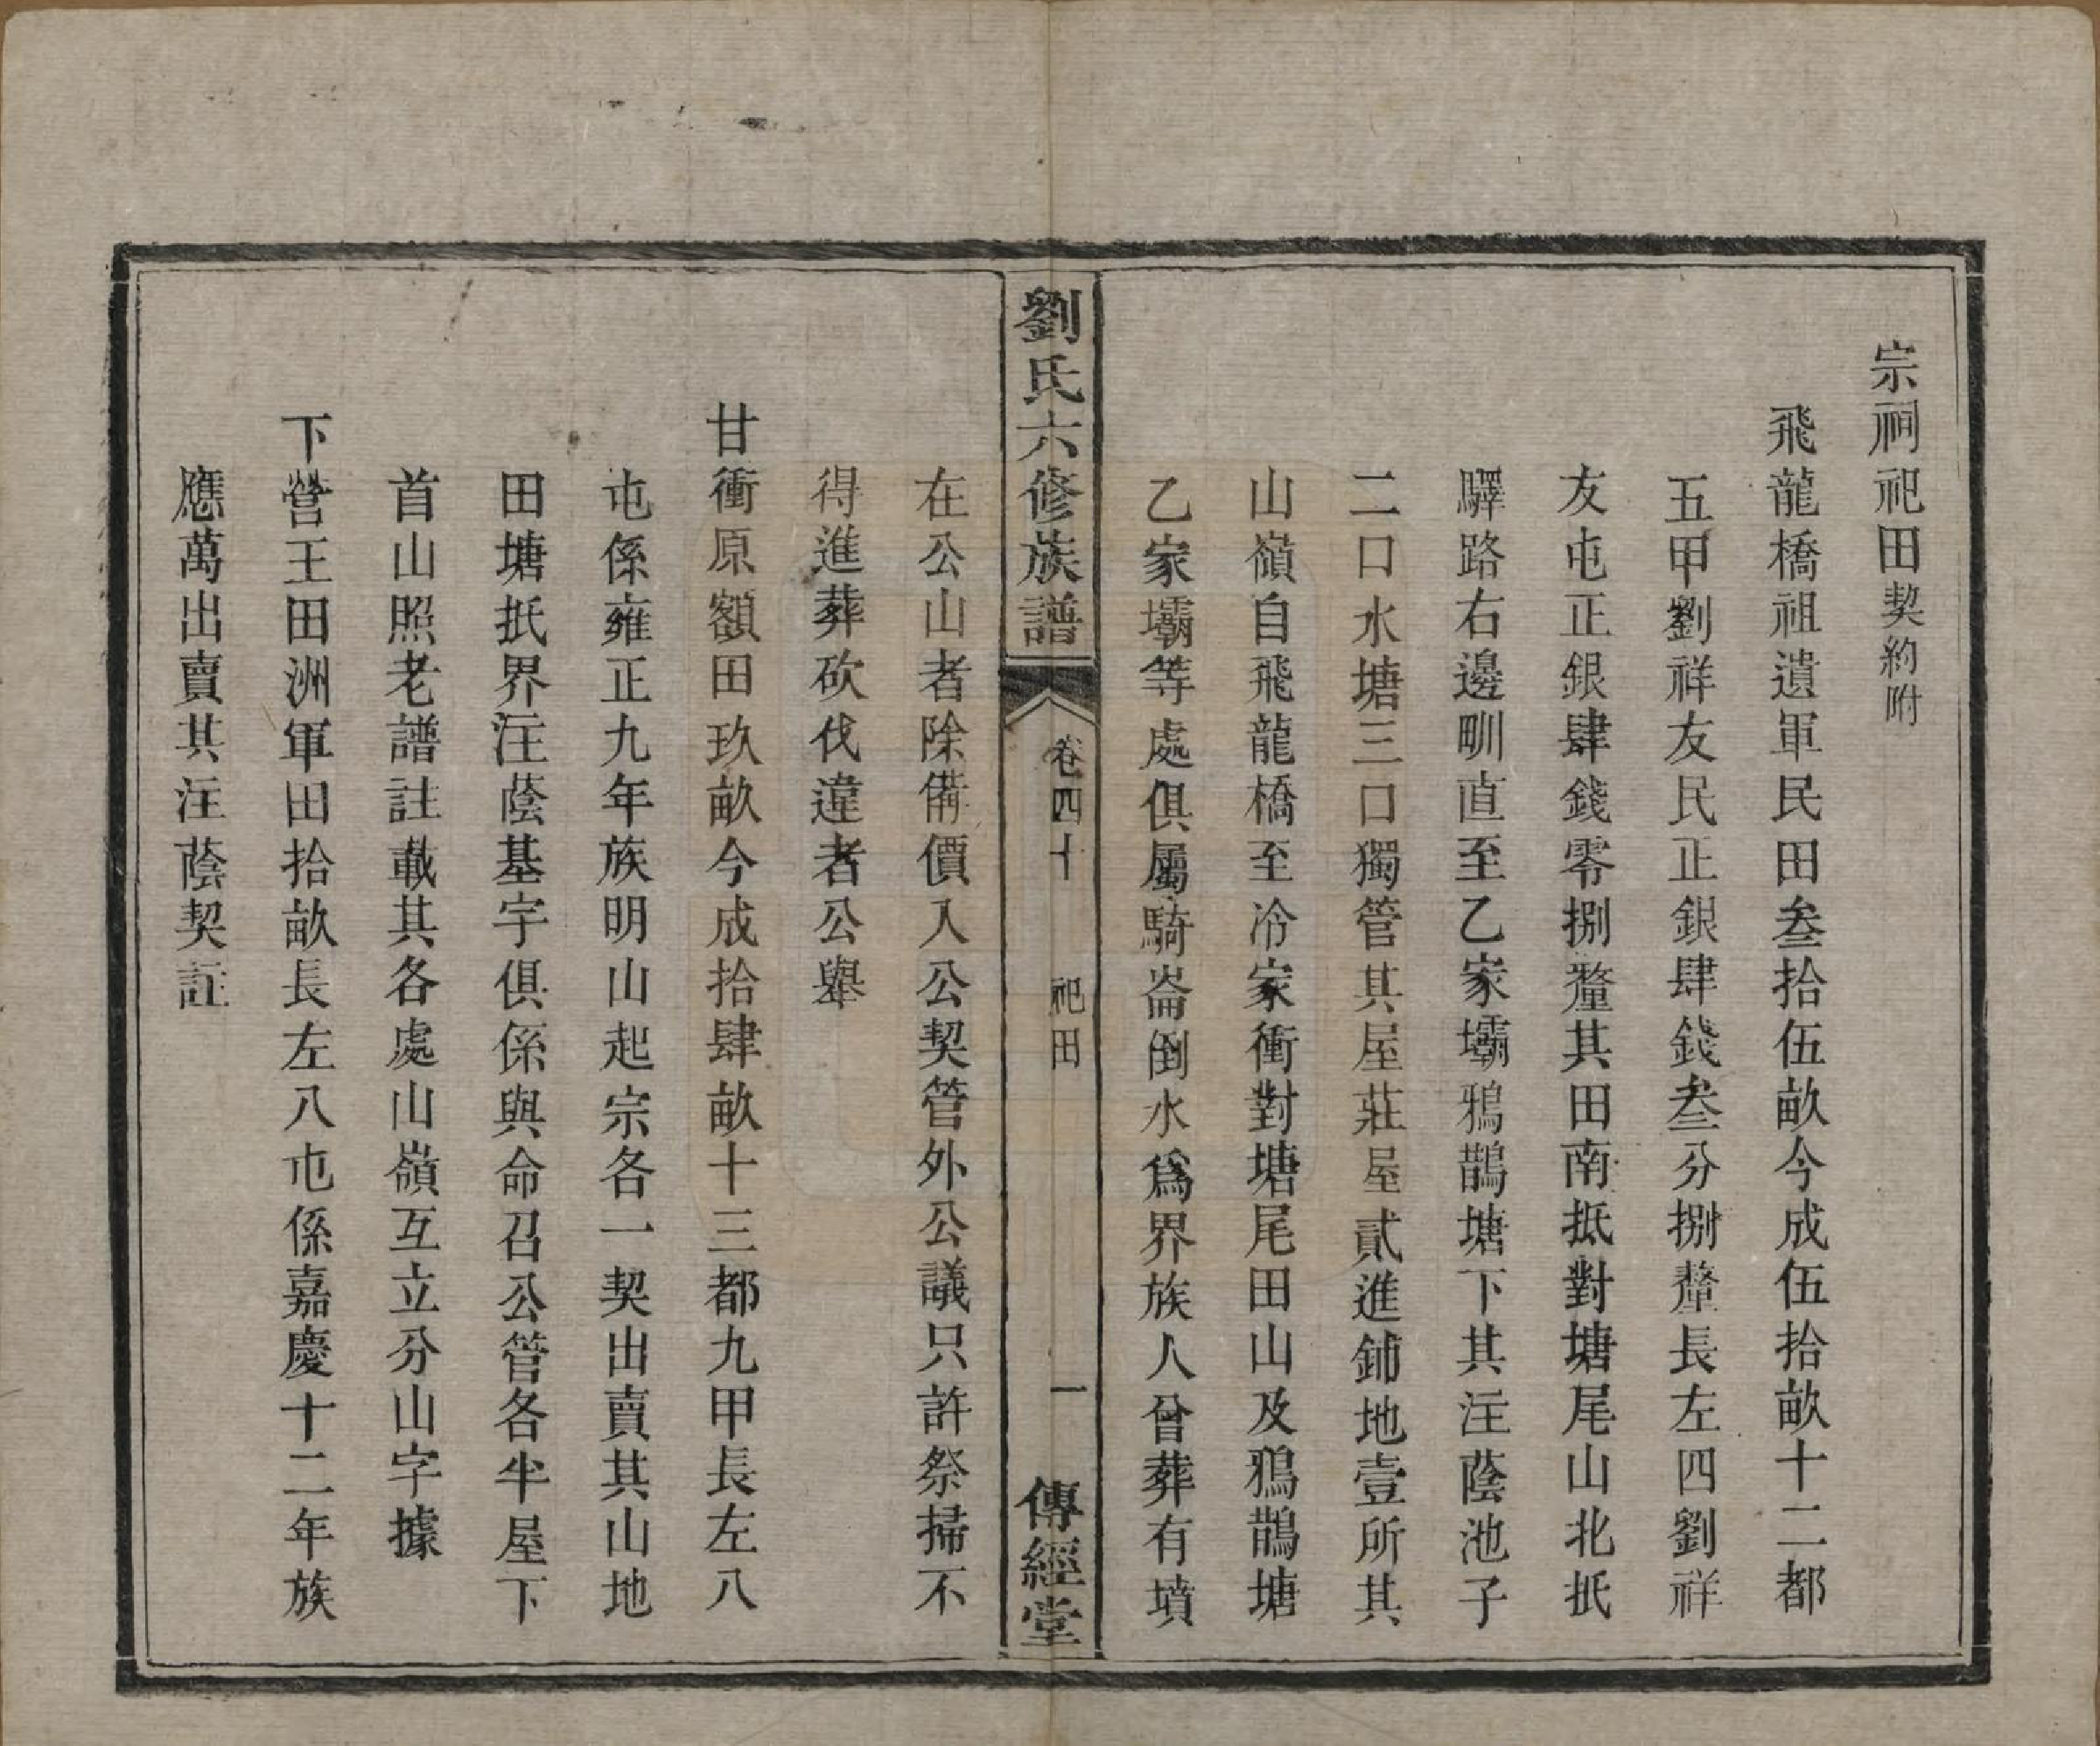 宗祠祀田契約附
飛龍橋祖遺軍民田叁拾伍畝今成伍拾畝十二都
五甲劉祥友民正銀肆錢叁分捌釐長左四劉祥
友屯正銀肆錢零捌釐其田南抵對塘尾山北抵
驛路右邊甽直至乙家壩鴉鵲塘下其注蔭池子
二口水塘三口獨管其屋莊屋貳進鋪地壹所其
山嶺自飛龍橋至冷家衝對塘尾田山及鴉鵲塘
乙家壩等處俱屬騎崙倒水爲界族人曾葬有墳
劉氏六修族譜
卷四十
祀田
一
傳經堂
在公山者除備價入公契管外公議只許祭掃不
得進葬砍伐違者公舉
甘衝原額田玖畝今成拾肆畝十三都九甲長左八
屯係雍正九年族明山起宗各一契出賣其山地
田塘抵界注蔭基宇俱係與命召公管各半屋下
首山照老譜註載其各處山嶺互立分山字據
下營王田洲軍田拾畝長左八屯係嘉慶十二年族
應萬出賣其注蔭契註